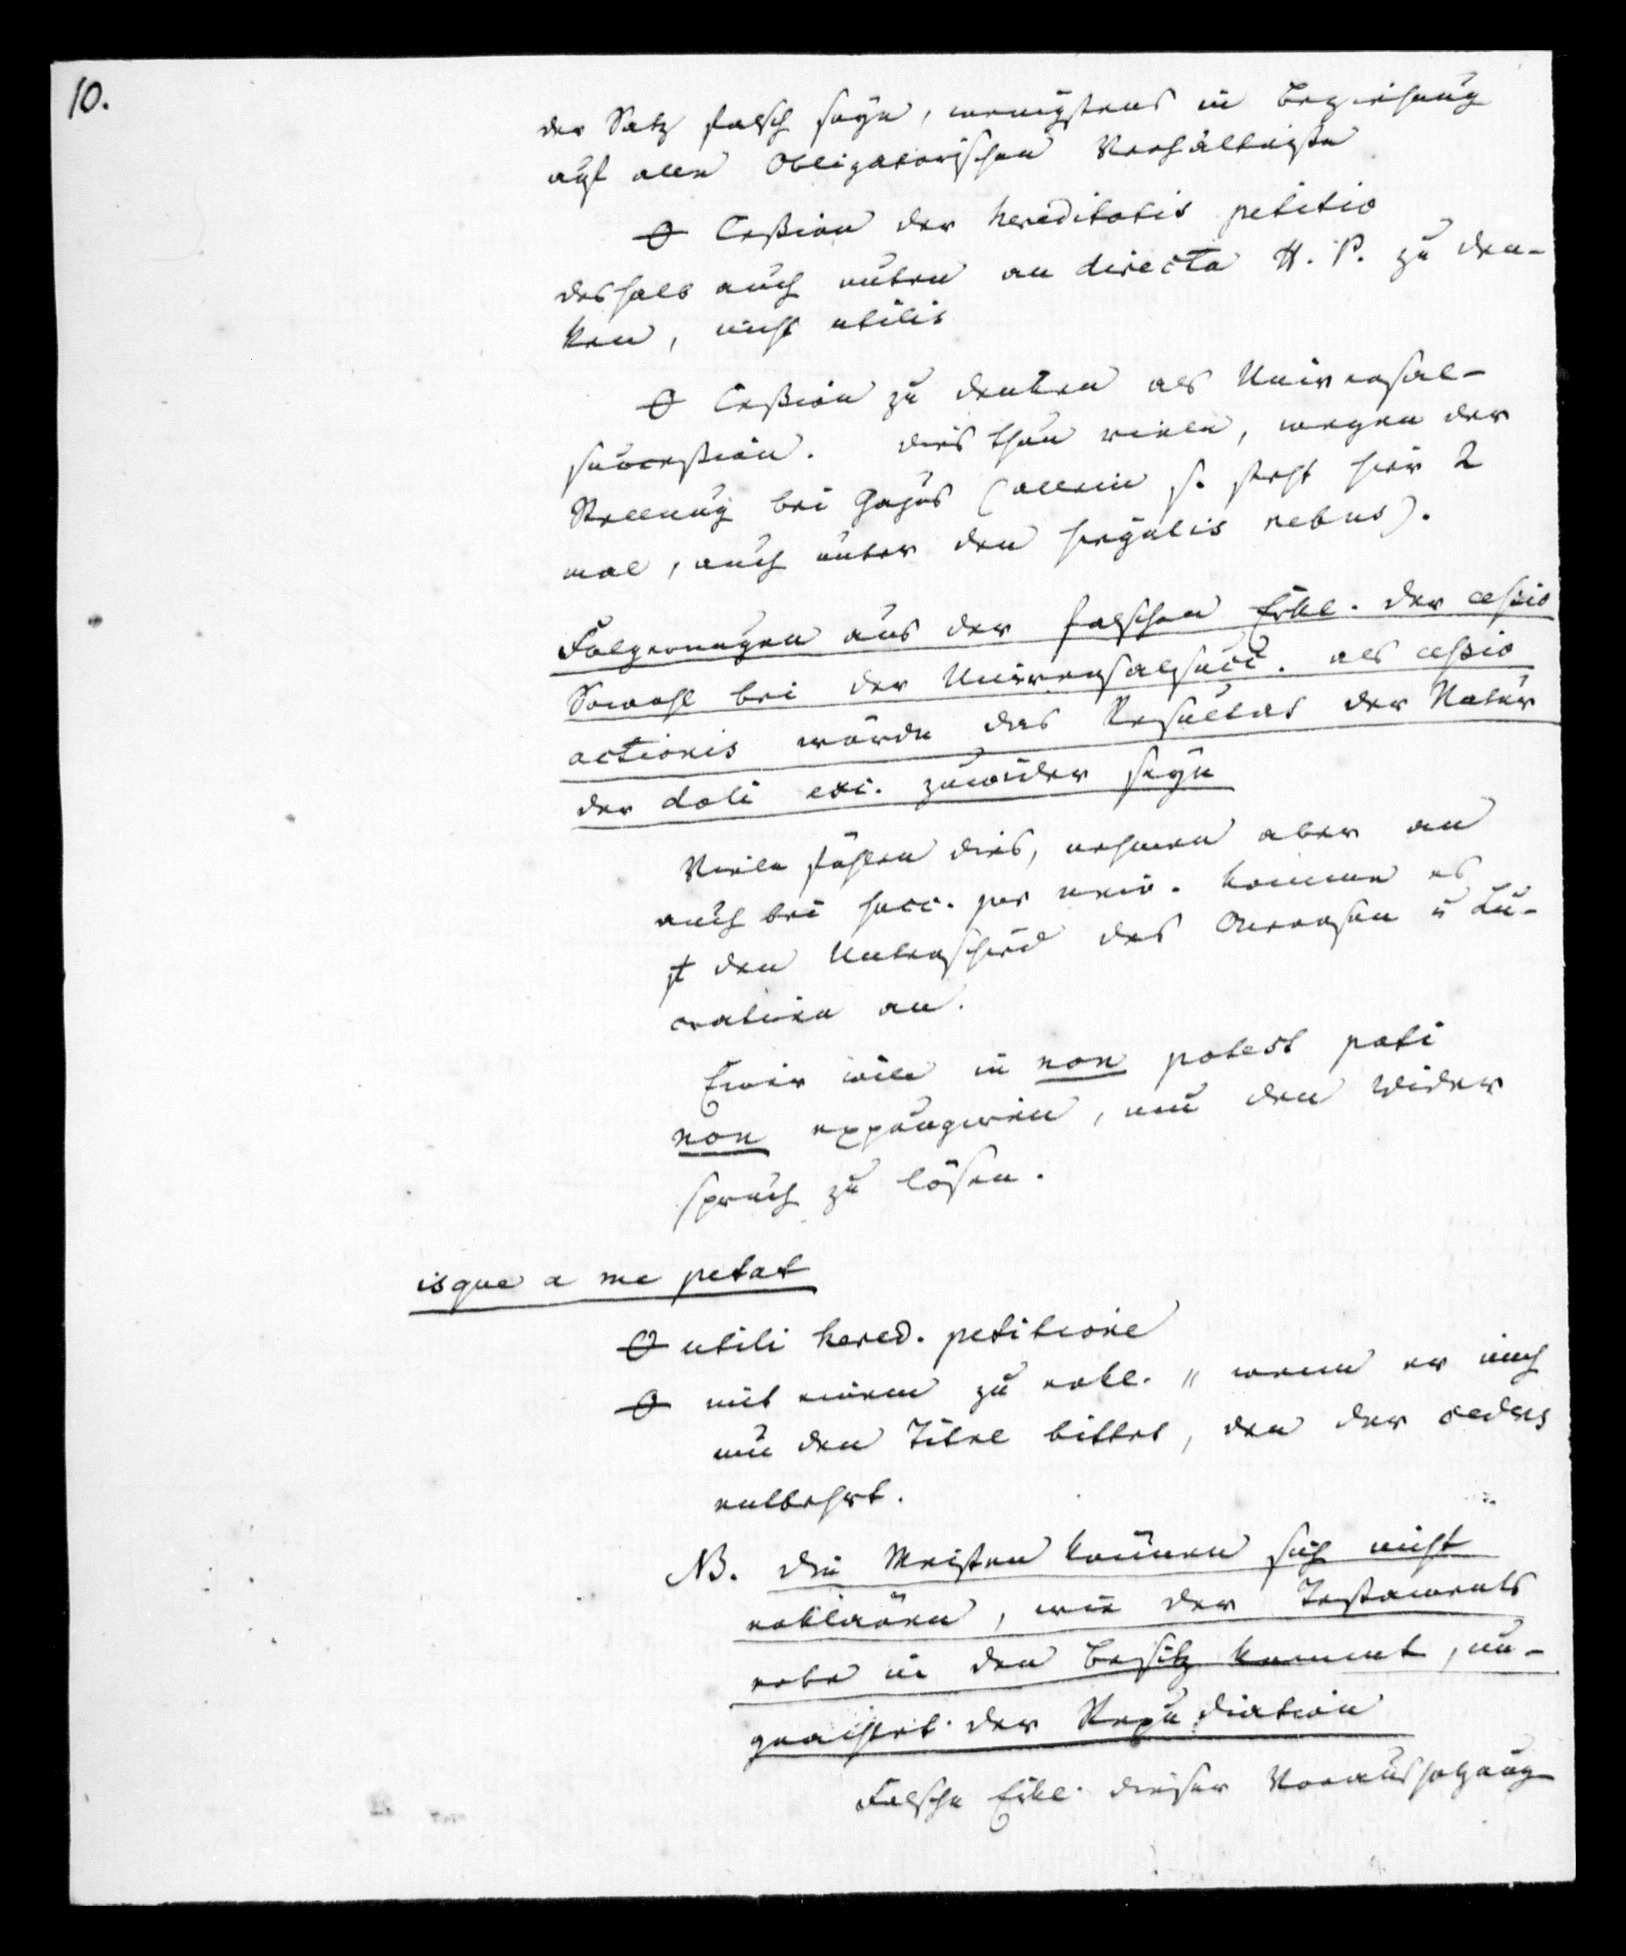 10.
der Satz falsch seyn, wenigstens in Beziehung
auf allen Obligatorischen Verhältniße
Ꝋ Ceßion der hereditatis petitio
deshalb auch an directa H. P. zu den-
ken, nicht utilis
Ꝋ Ceßion zu denken als Universal-
succeßion. dies thun viele, wegen der
Stellung bei Gajus (allein s. steht hier 2
mal, auch unter den singulis rebus).
Folgerungen aus der falschen Erkl. der ceßio
Sowohl bei der Universalsucc. als ceßio
actionis würde das Resultat der Natur
der doli exc. zuwider seyn
Viele fühlen dies, nehmen aber an
auch bei succ. per univ. komme es
auf den Unterschied des Onerosen u Lu-
crativen an.
Einer will in non potest pati
non expungiren, um den Wider
spruch zu lösen.
isque a me petat
Ꝋ utili hered. petitione
Ꝋ mit einem zu erkl. „ wenn er mich
um den Titel bittet, den der cedens
entbehrt.
NB. die Meisten können sich nicht
erklären, wie der Testaments
erbe in den Besitz kommt, un-
geachtet der Repudiation
Falsche Erkl. dieser Voraussetzung